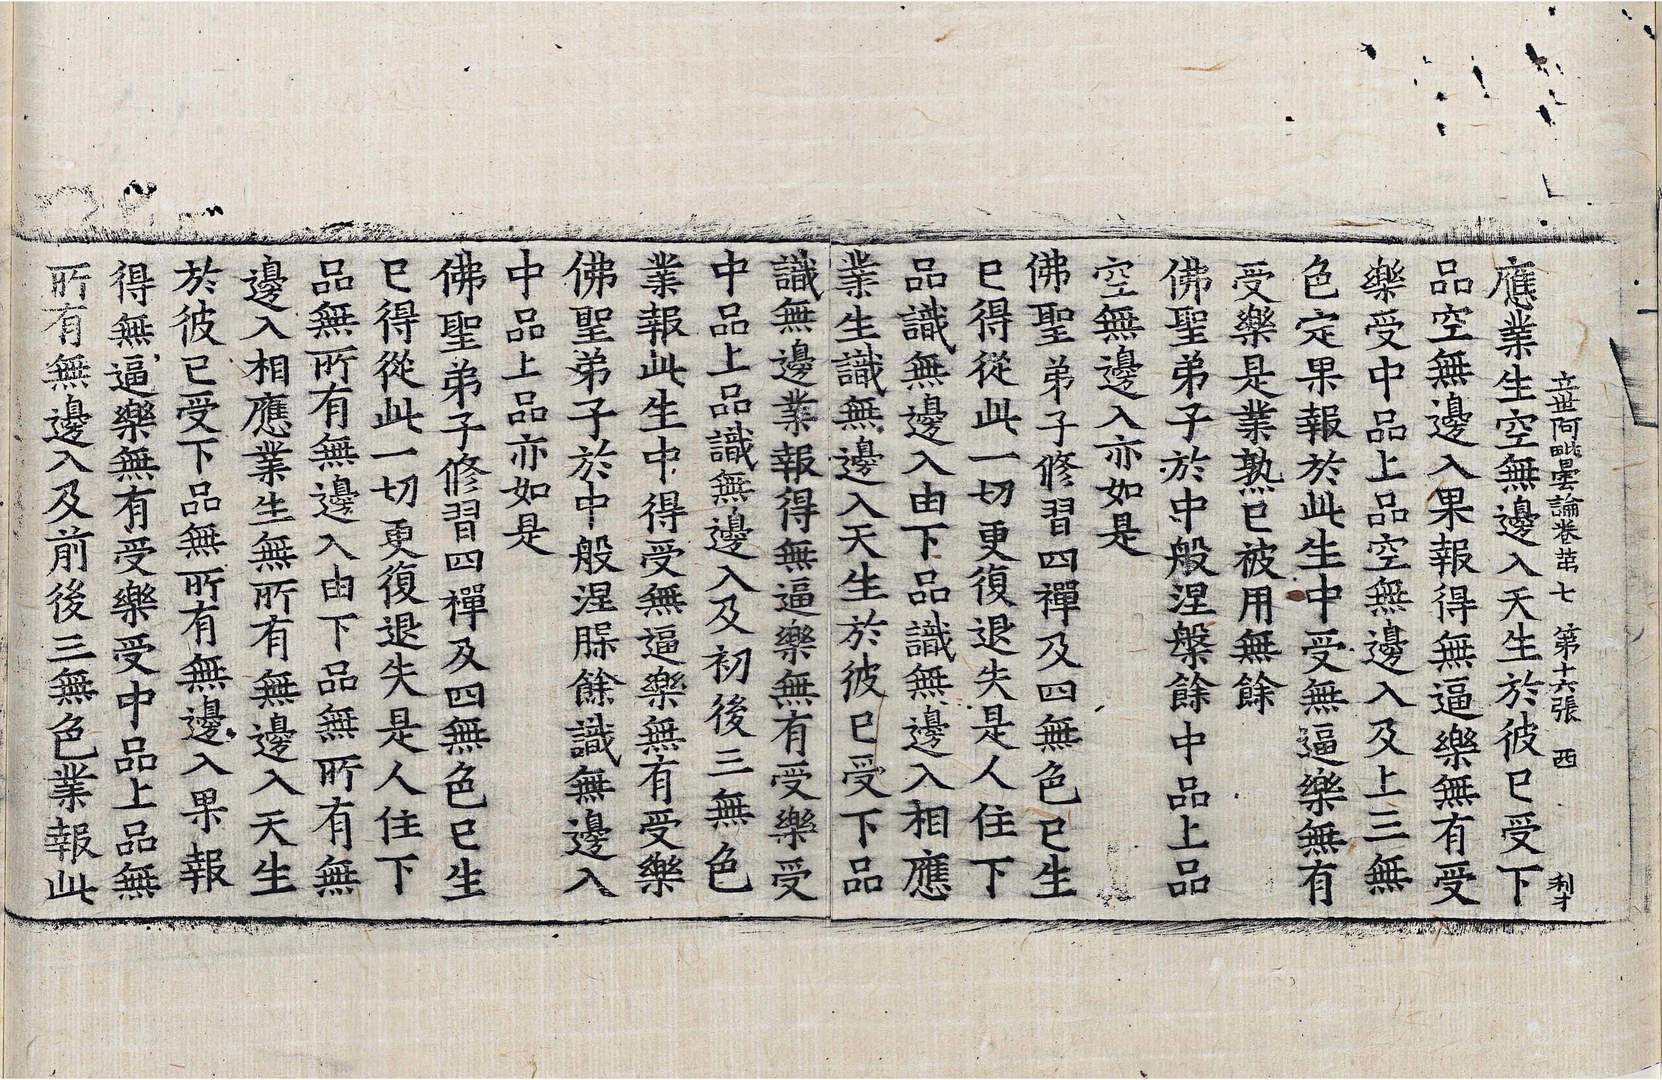 立世阿毗曇論卷第七 第十六張 西 利才
應業生空無邊入天生於彼已受下
品空無邊入果報得無逼樂無有受
樂受中品上品空無邊入及上三無
色定果報於此生中受無逼樂無有
受樂是業熟已被用無餘
佛聖弟子於中般涅槃餘中品上品
空無邊入亦如是
佛聖弟子修習四禪及四無色已生
已得從此一切更復退失是人住下
品識無邊入由下品識無邊入相應
業生識無邊入天生於彼已受下品
識無邊業報得無逼樂無有受樂受
中品上品識無邊入及初後三無色
業報此生中得受無逼樂無有受樂
佛聖弟子於中般涅槃餘識無邊入
中品上品亦如是
佛聖弟子修習四禪及四無色已生
已得從此一切更復退失是人住下
品無所有無邊入由下品無所有無
邊入相應業生無所有無邊入天生
於彼已受下品無所有無邊入果報
得無逼樂無有受樂受中品上品無
所有無邊入及前後三無色業報此